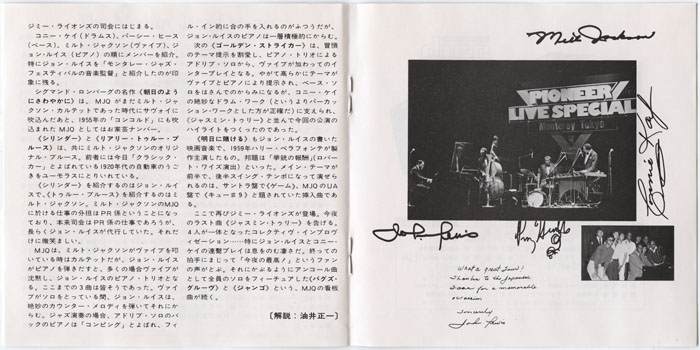 ジミー・ライオンズの司会にはじまる。
コニー・ケイ(ドラムス)、パーシー・ヒース
(ベース)、ミルト・ジャクソン(ヴァイブ)、ジ
ョン・ルイス(ピアノ)の順にメンバーを紹介。
特にジョン・ルイスを「モンタレー・ジャズ・
フェスティバルの音楽監督」と紹介したのが印
象に残る。
シグマンド・ロンバーグの名作《朝日のよう
にさわやかに》は、MJQがまだミルト・ジャク
ソン・カルテットであった時代にサヴォイに
吹込んだあと、1955年の「コンコルド」にも吹
込まれたMJQとしてはお家芸ナンバー。
《シリンダー》と《リアリー・トゥルー・ブ
ルース》は、共にミルト・ジャクソンのオリジ
ナル・ブルース。前者には今日「クラシック・
カー」とよばれている1920年代の自動車のうご
きをユーモラスにとりいれている。
《シリンダー》を紹介するのはジョン・ルイ
スで、《トゥルー・ブルース》を紹介するのはミ
ルト・ジャクソン。ミルト・ジャクソンのMJQ
に於ける仕事の分担はPR係ということになっ
ており、本来司会はPR係の仕事であろうが、
長らくジョン・ルイスが代行していた。それだ
けに微笑ましい。
MJQは、ミルト・ジャクソンがヴァイブを叩
いている時はカルテットだが、ジョン・ルイス
がピアノを弾きだすと、多くの場合ヴァイブが
沈黙し、ジョン・ルイスのピアノ・トリオとな
る。ここまでの3曲は皆そうであった。ヴァイ
ブがソロをとっている間、ジョン・ルイスは、
絶妙のカウンター・メロディを弾いてそれにか
らむ。ジャズ演奏の場合、アドリブ・ソロのバ
ックのピアノは「コンピング」とよばれ、フィ
ル・イン的に合の手を入れるのがふつうだが、
ジョン・ルイスのピアノは一層積極的にからむ。
次の《ゴールデン・ストライカー》は、冒頭
のテーマ提示を割愛し、ピアノ・トリオによる
アドリブ・ソロから、ヴァイブが加わってのイ
ンタープレイとなる。やがて高らかにテーマが
ヴァイブとピアノにより提示され、ベース・ソ
ロをはさんでのからみになるが、コニー・ケイ
の絶妙なドラム・ワーク(というよりパーカッ
ション・ワークとした方が正確だ)に支えられ、
《ジャスミン・トゥリー》と並んで今回の公演の
ハイライトをつくったのであった。
《明日に賭ける》もジョン・ルイスの書いた
映画音楽で、1959年ハリー・ベラフォンテが製
作主演したもの。邦題は「拳銃の報酬」(ロバー
ト・ワイズ演出)といった。メイン・テーマが
前半で、後半スイング・テンポになって演ぜら
れるのは、サントラ盤で《ゲーム》、MJQのUA
盤で《キュー#9》と題されていた挿入曲であ
る。
ここで再びジミー・ライオンズが登場。今夜
のラスト曲《ジャスミン・トゥリー》を告げる。
4人が一体となったコレクティヴ・インプロヴ
ィゼーション……特にジョン・ルイスとコニー・
ケイの連繋プレイは息をのむ凄さだ。終っての
拍手にまじって「今夜の最高!」というファン
の声がとぶ。それにかぶせるようにアンコール曲
として全員のソロをフィーチュアした《バグズ・
グルーヴ》と《ジャンゴ》という、MJQの看板
曲が続く。
〔解説:油井正一〕
Milt Jackson
PIONEER
LIVE SPECIAL
Monterey Tokyo
Connie Kay
John Lewis
What a great Tour!
Thanks to the Japanese
fans for a memorable
occasion
Sincerely
John Lewis